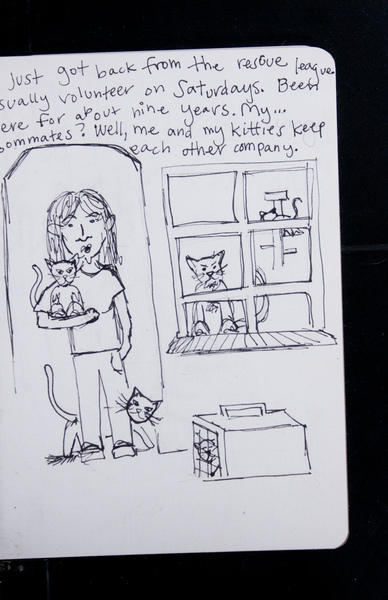 just got back from the rescue league
sually volunteer on Saturdays. Been
ere for about nine years. My...
oommates? Well, me and my kitties keep
each other company.